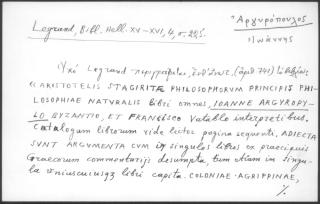 Legrand, Bibl. Hell. XV-XVI, 4, σ. 285.
Ἀργυρόπουλος
Ἰωάννης
Ὑπὸ Legrand περιγράφεται, (ἀριθ 741)
ARISTOTELIS STAGIRITAE PHILOSOPHORUM PRINCIPIS PHI-
LOSOPHIAE NATURALIS libri omnes, IOANNE ARGYROPY-
LO BYZANTIO, ET FRANCISCO Vatablo interpretibus.
Catalogum librorum vide lector pagina sequenti. ADIECTA
SUNT ARGUMENTA CUM in singulos libros ex praecipuis
Graecorum commentarijs desumpta, tum etiam in singu-
la uniuscuiusq3 libri capita. COLONIAE AGRIPPINAE,
./.